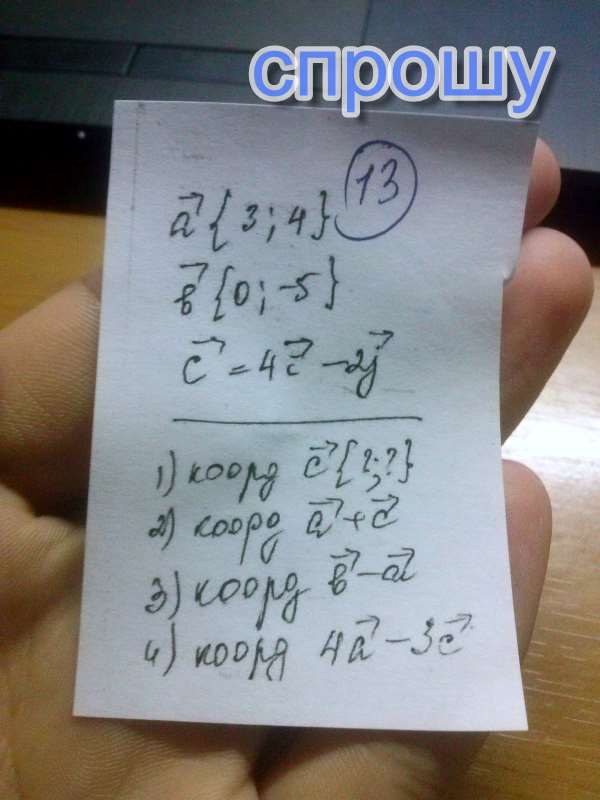 спрошу
13
a⃗ {3; 4}
в⃗ {0; -5}
c⃗ = 4i⃗ - 2j⃗
1) коорд c⃗ {?;?}
2) коорд a⃗ + c⃗
3) коорд в⃗ - a⃗
4) коорд 4a⃗ - 3c⃗